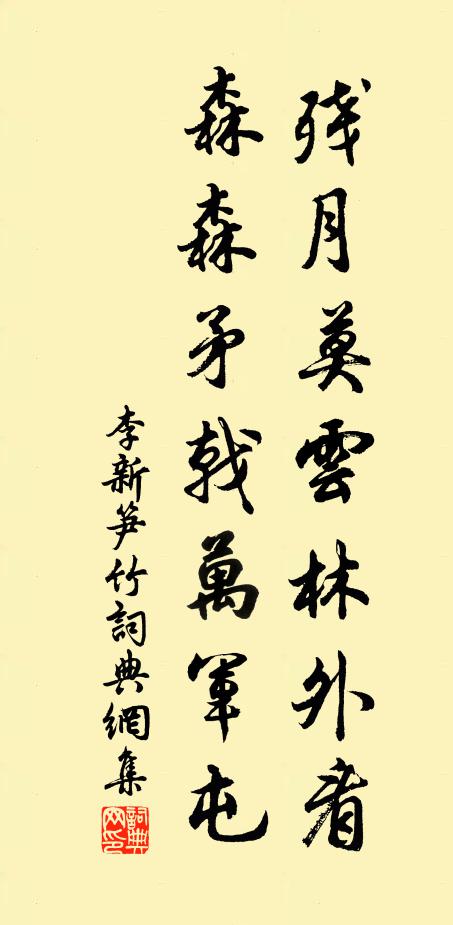 残月莫雲林外看
森森矛戟萬軍屯
李新笋竹詞典網集
詞典
网印